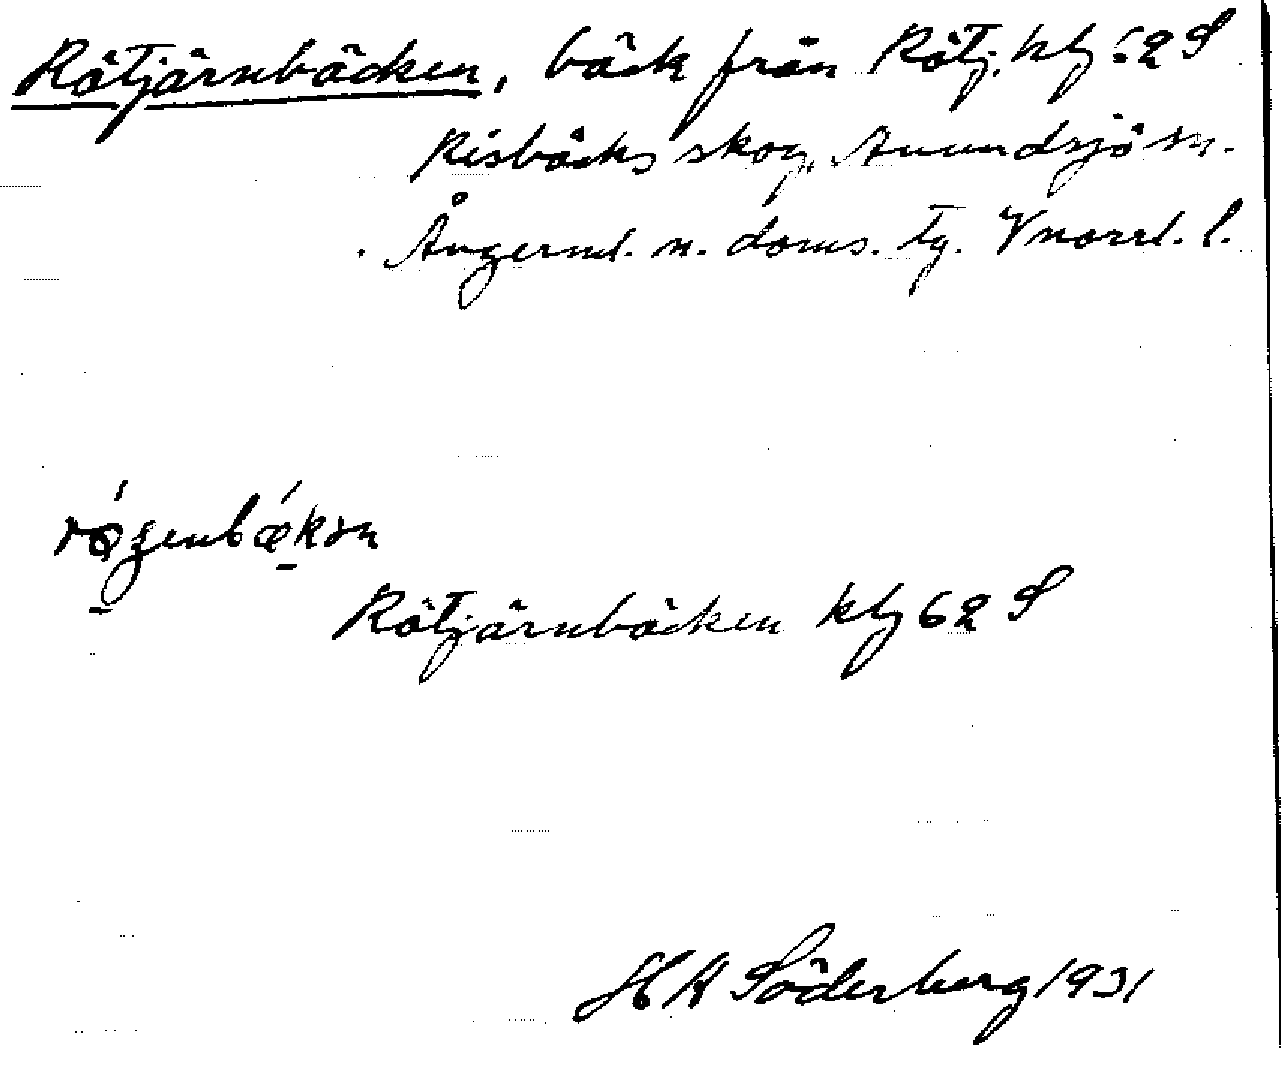 Rötjärnbäcken, bäck från Rötj. kbj 62 S
Risbäcks skog, Anundsjö sn.
Ångerml. n. doms. tg. Vnorrl. l.
Rötjärnbäcken kbj 62 S
H A Söderberg 1931